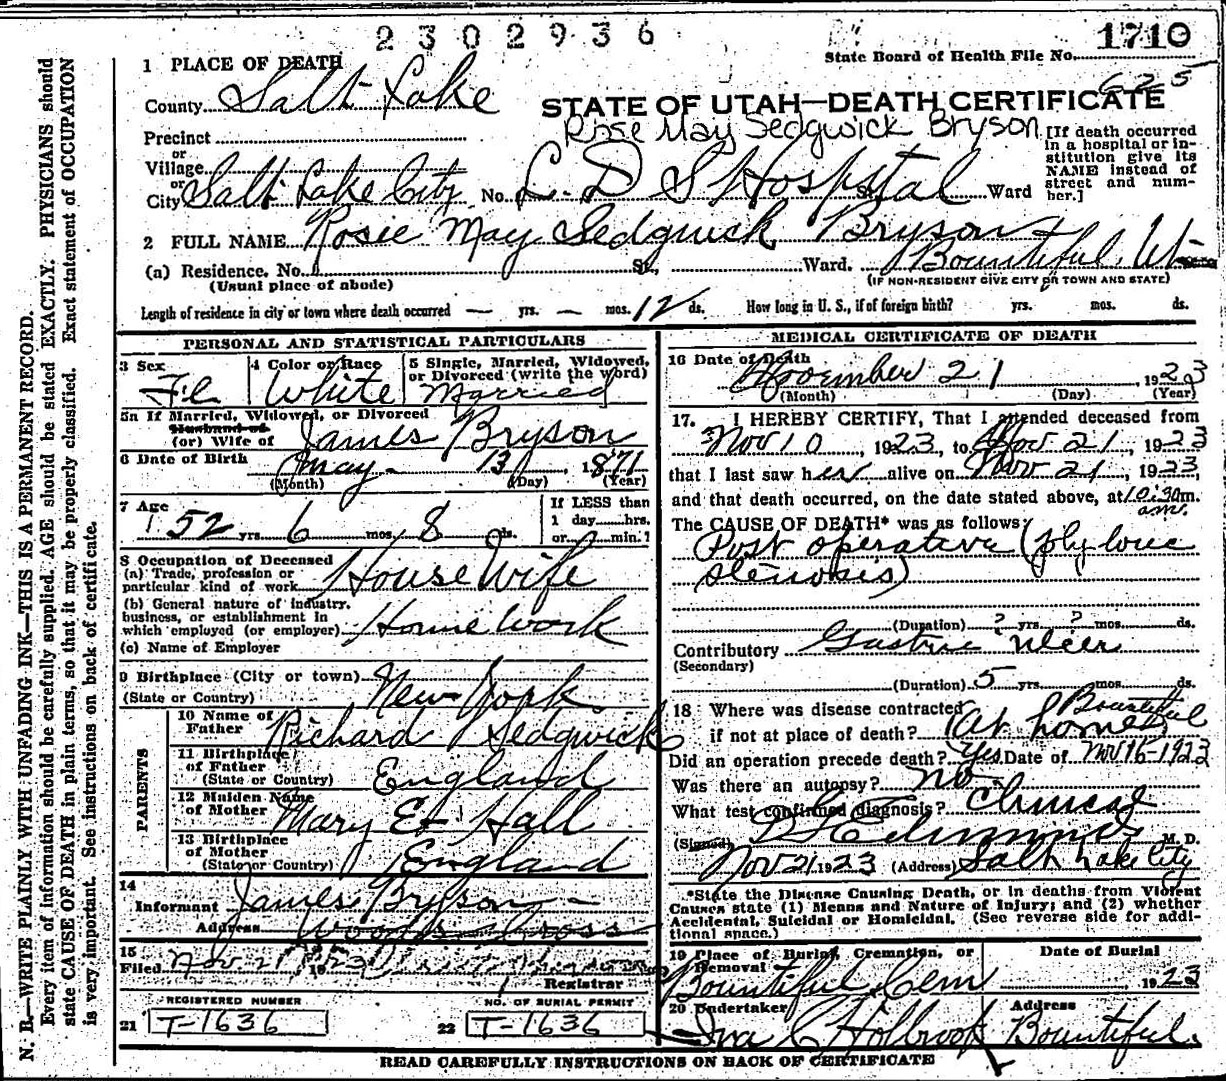 2302936
1710
State Board of Health File No.
625
1 PLACE OF DEATH
County Salt Lake
STATE OF UTAH—DEATH CERTIFICATE
Rose May Sedgwick Bryson
Precinct
or
Village
or
City Salt Lake City No. L. D S Hospital St. Ward
[If death occurred in a hospital or institution give its NAME instead of street and number.]
2 FULL NAME Rosie May Sedgwick Bryson
(a) Residence. No. St., Ward. Bountiful, Ut
(Usual place of abode) (IF NON-RESIDENT GIVE CITY OR TOWN AND STATE)
Length of residence in city or town where death occurred — yrs. — mos. 12 ds. How long in U. S., if of foreign birth? yrs. mos. ds.
PERSONAL AND STATISTICAL PARTICULARS
3 Sex Fe
4 Color or Race White
5 Single, Married, Widowed, or Divorced (write the word) Married
5a If Married, Widowed, or Divorced
Husband of
(or) Wife of James Bryson
6 Date of Birth May 13, 1871
(Month) (Day) (Year)
7 Age 52 yrs. 6 mos. 8 ds.
If LESS than
1 day......hrs.
or......min.?
8 Occupation of Deceased
(a) Trade, profession or
particular kind of work House Wife
(b) General nature of industry,
business, or establishment in
which employed (or employer) Home Work
(c) Name of Employer
9 Birthplace (City or town) New York
(State or Country)
PARENTS
10 Name of
Father Richard Sedgwick
11 Birthplace
of Father
(State or Country) England
12 Maiden Name
of Mother Mary E. Hall
13 Birthplace
of Mother
(State or Country) England
14
Informant James Bryson
Address Woods Cross
15
Filed Nov. 21 1923
Registrar
REGISTERED NUMBER
21 T-1636
NO. OF BURIAL PERMIT
22 T-1636
MEDICAL CERTIFICATE OF DEATH
16 Date of Death
November 21, 1923
(Month) (Day) (Year)
17. I HEREBY CERTIFY, That I attended deceased from
Nov 10, 1923, to Nov 21, 1923
that I last saw her alive on Nov 21, 1923,
and that death occurred, on the date stated above, at 10:30 m.
am.
The CAUSE OF DEATH* was as follows:
Post operative (pyloric
stenosis)
(Duration) ? yrs. ? mos. ds.
Contributory Gastric ulcer
(Secondary)
(Duration) 5 yrs. mos. ds.
18 Where was disease contracted Bountiful
if not at place of death? At home
Did an operation precede death? Yes Date of Nov 16-1923
Was there an autopsy? no
What test confirmed diagnosis? Clinical
(Signed) M. D.
Nov 21 1923 (Address) Salt Lake City
*State the Disease Causing Death, or in deaths from Violent
Causes state (1) Means and Nature of Injury; and (2) whether
Accidental, Suicidal or Homicidal. (See reverse side for addi-
tional space.)
19 Place of Burial, Cremation, or
Removal
Bountiful Cem
Date of Burial
1923
20 Undertaker
Ira C Holbrook
Address
Bountiful.
READ CAREFULLY INSTRUCTIONS ON BACK OF CERTIFICATE
N. B.—WRITE PLAINLY WITH UNFADING INK—THIS IS A PERMANENT RECORD.
Every item of information should be carefully supplied. AGE should be stated EXACTLY. PHYSICIANS should
state CAUSE OF DEATH in plain terms, so that it may be properly classified. Exact statement of OCCUPATION
is very important. See instructions on back of certificate.